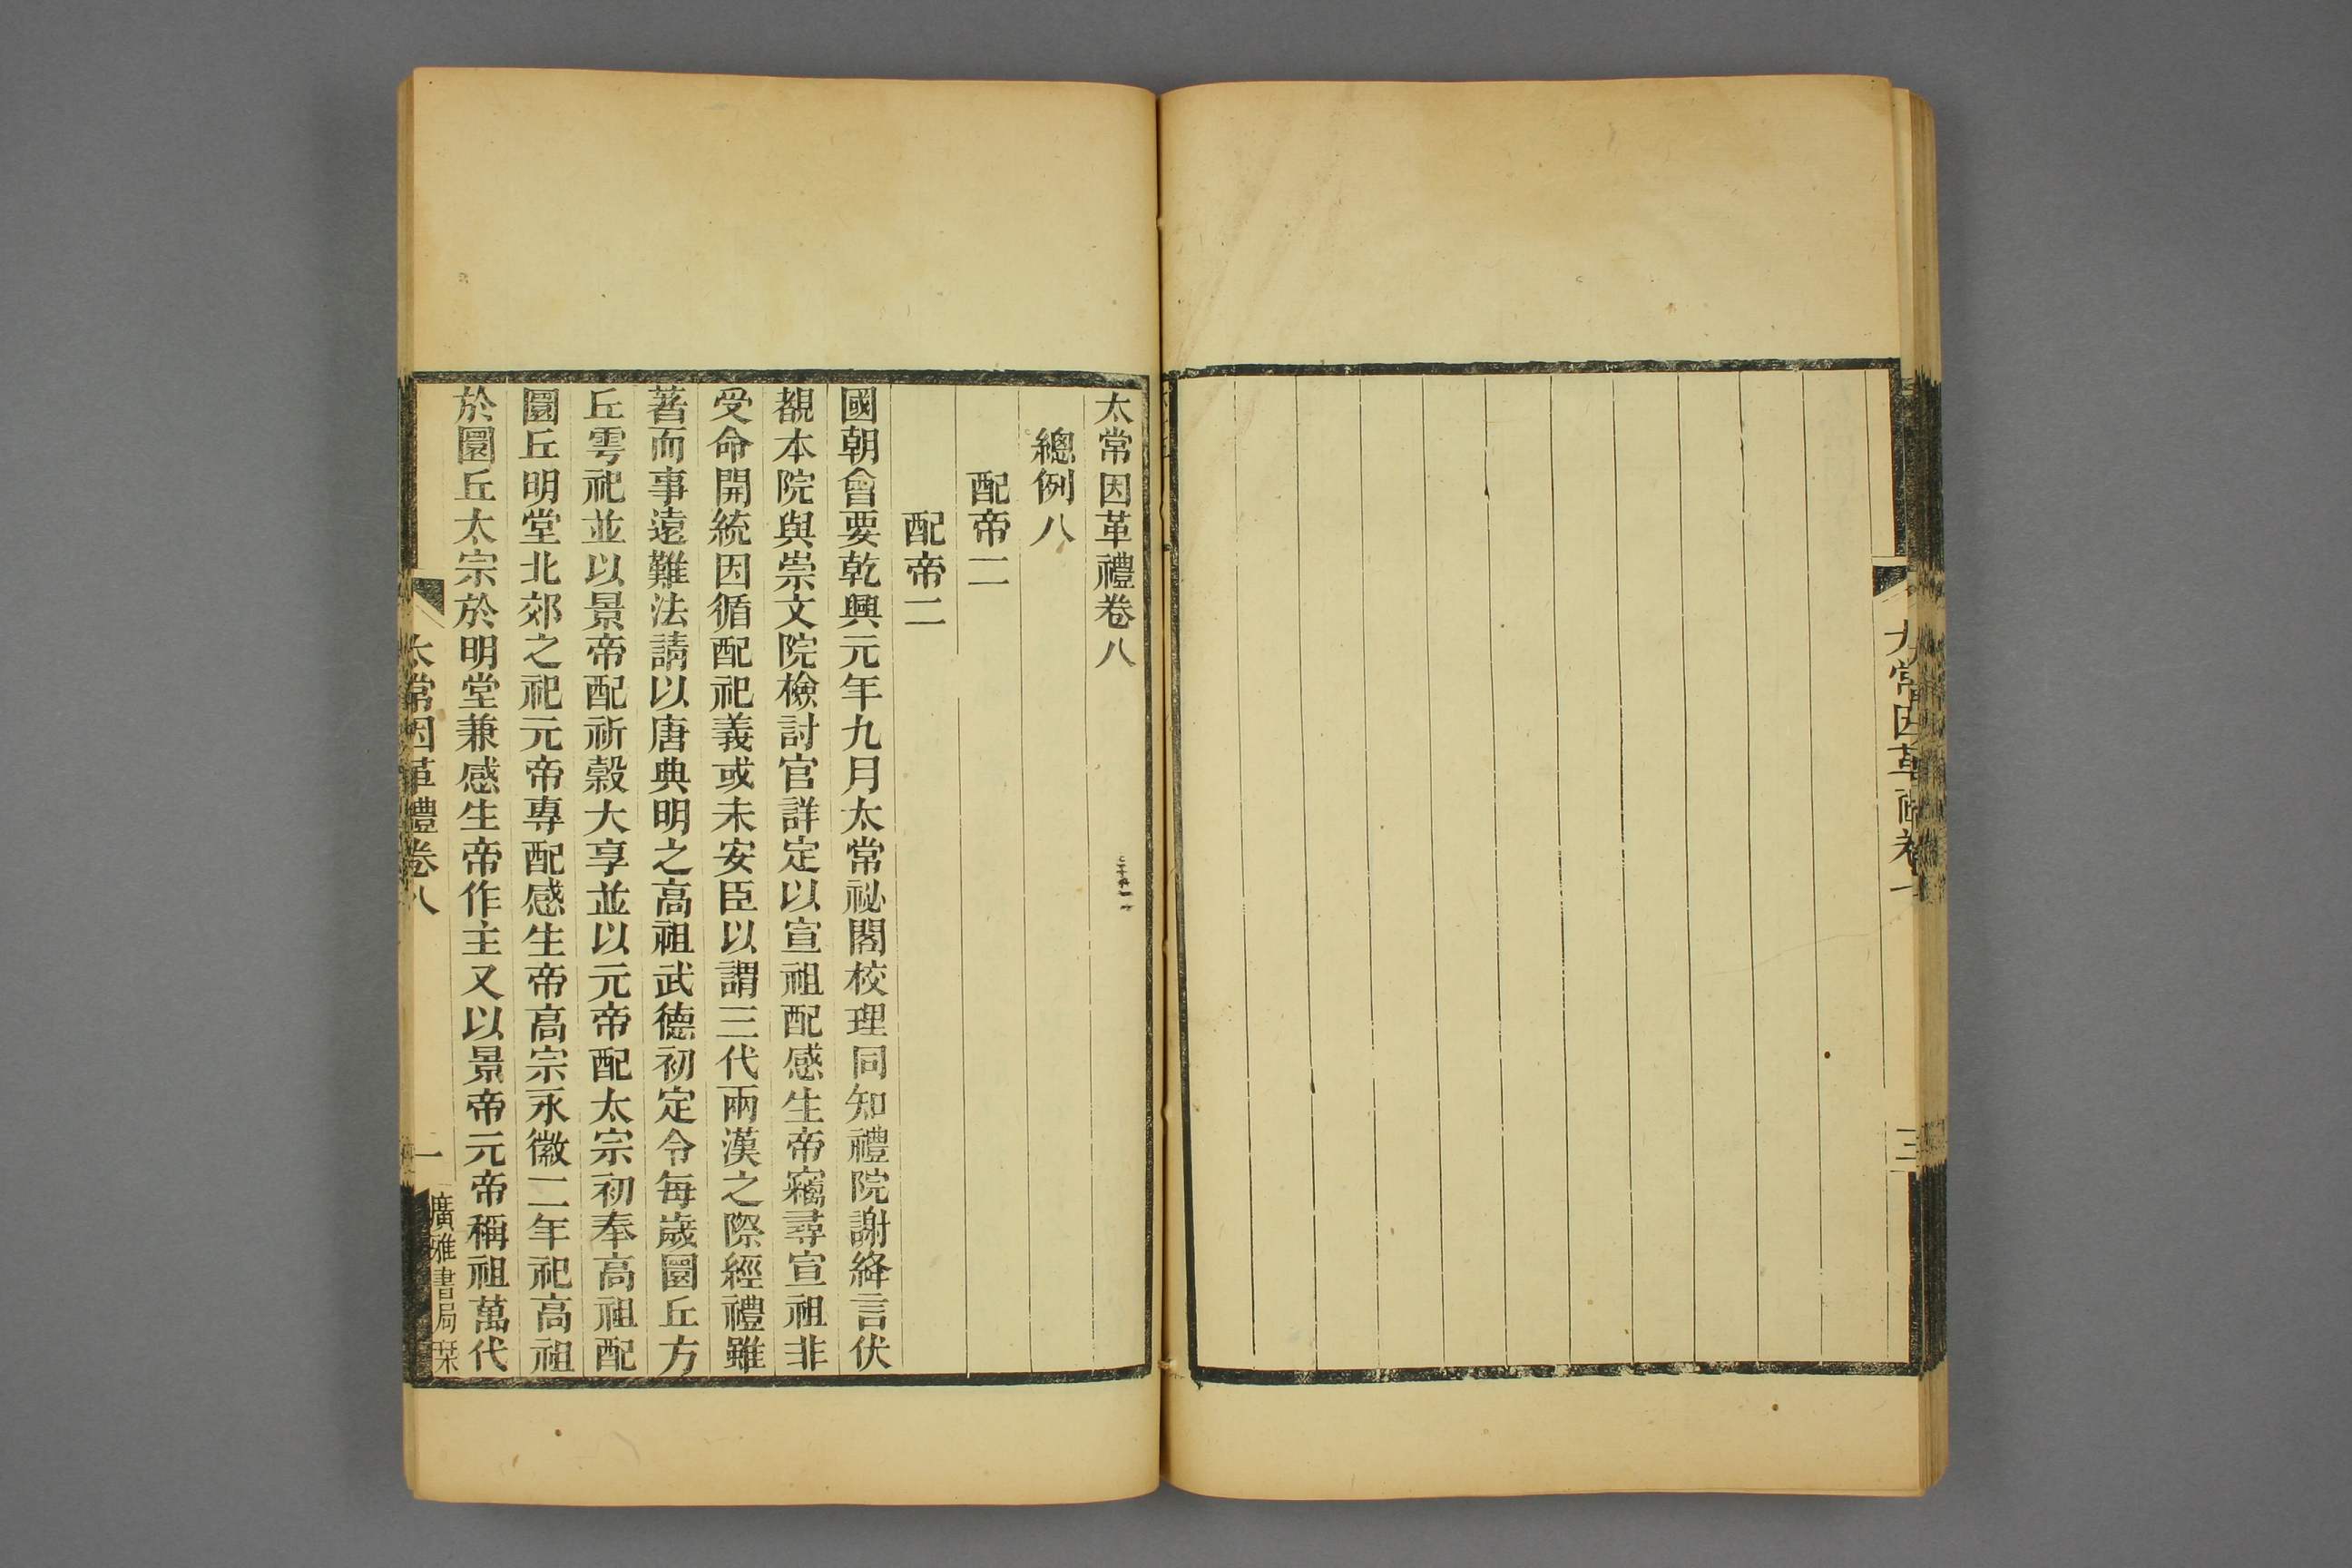 太常因革禮卷八
總例八
配帝二
配帝二
國朝會要乾興元年九月太常祕閣校理同知禮院謝絳言伏
覩本院與崇文院檢討官詳定以宣祖配感生帝竊尋宣祖非
受命開統因循配祀義或未安臣以謂三代兩漢之際經禮雖
著而事遠難法請以唐典明之高祖武德初定令每歲圜丘方
丘雩祀並以景帝配祈穀大享並以元帝配太宗初奉高祖配
圜丘明堂北郊之祀元帝專配感生帝高宗永徽二年祀高祖
於圜丘太宗於明堂兼感生帝作主又以景帝元帝稱祖萬代
太常因革禮卷八
一
廣雅書局栞